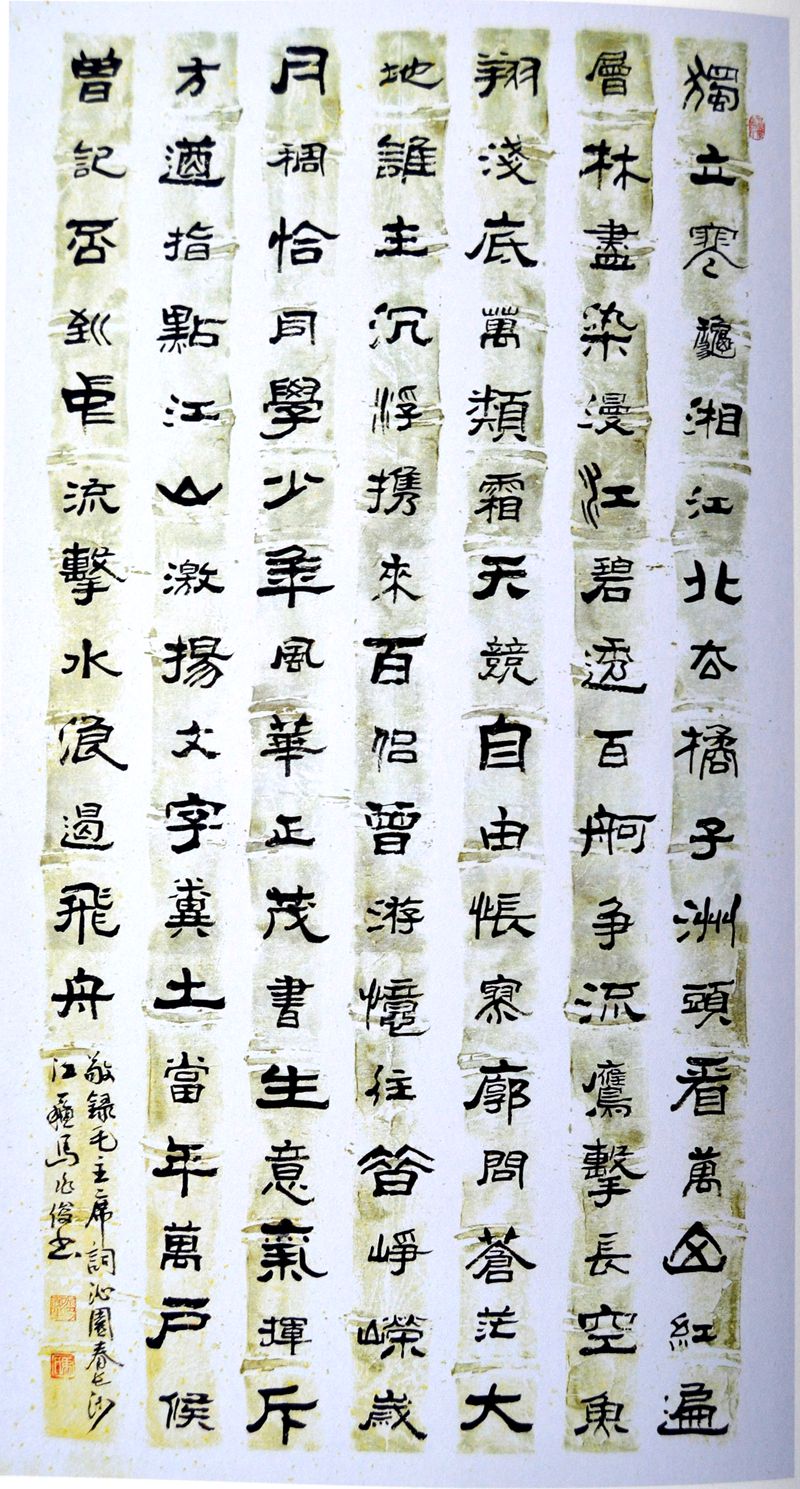 獨立寒龝湘江北去橘子洲頭看萬山紅遍
層林盡染漫江碧透百舸争流鷹擊長空魚
翔淺底萬類霜天競自由悵寥廓問蒼茫大
地誰主沉浮携來百侶曾游憶往昔崢嶸歲
月稠恰同學少年風華正茂書生意氣揮斥
方遒指點江山激揚文字糞土當年萬戶侯
曾記否到中流擊水浪遏飛舟
敬録毛主席詞沁園春長沙
江蘇馬兆俊书